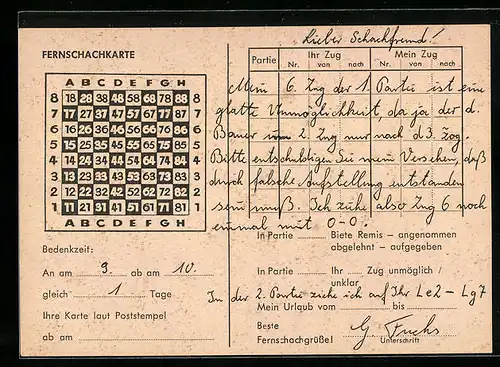 Lieber Schachfreund!
FERNSCHACHKARTE
Partie Ihr Zug Mein Zug
Nr. von nach Nr. von nach
A B C D E F G H
8 18 28 38 48 58 68 78 88 8
7 17 27 37 47 57 67 77 87 7
6 16 26 36 46 56 66 76 86 6
5 15 25 35 45 55 65 75 85 5
4 14 24 34 44 54 64 74 84 4
3 13 23 33 43 53 63 73 83 3
2 12 22 32 42 52 62 72 82 2
1 11 21 31 41 51 61 71 81 1
A B C D E F G H
Mein 6. Zug der 1. Partie ist eine
glatte Unmöglichkeit, da ja der d.
Bauer im 2. Zug nur nach d3 zog.
Bitte entschuldigen Sie mein Versehen, daß
durch falsche Aufstellung entstanden
sein muß. Ich ziehe also Zug 6 noch
einmal mit 0-0.
In Partie Biete Remis – angenommen
abgelehnt – aufgegeben
Bedenkzeit:
An am 9. ab am 10.
gleich 1 Tage
In Partie Ihr Zug unmöglich /
unklar
In der 2. Partie ziehe ich auf Ihr Le2 - Lg7
Mein Urlaub vom bis
Ihre Karte laut Poststempel
ab am
Beste
Fernschachgrüße!
G. Fuchs
Unterschrift